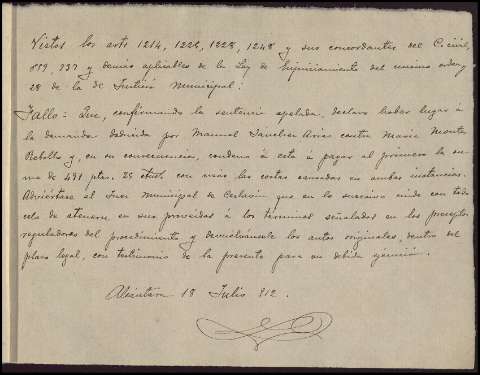 Vistos los arts 1214, 1226, 1228, 1248 y sus concordantes del C. civil,
y demás aplicables de la Ley de Enjuiciamiento del mismo orden y
28 de la de Justicia Municipal:
Fallo = Que, confirmando la sentencia apelada, declaro haber lugar á
la demanda deducida por Manuel Sanchez Arias contra Maria Montes
Rebollo y, en su consecuencia, condeno á esta á pagar al primero la su-
ma de 491 ptas. 25 con más las costas causadas en ambas instancias.
Adviértase al Juez Municipal de que en lo sucesivo cuide con todo
celo de atenerse en sus proveidos á los términos señalados en los preceptos
reguladores del procedimiento y devuélvansele los autos originales, dentro del
plazo legal, con testimonio de la presente para su debida ejecución.
Alcántara 18 Julio 912.